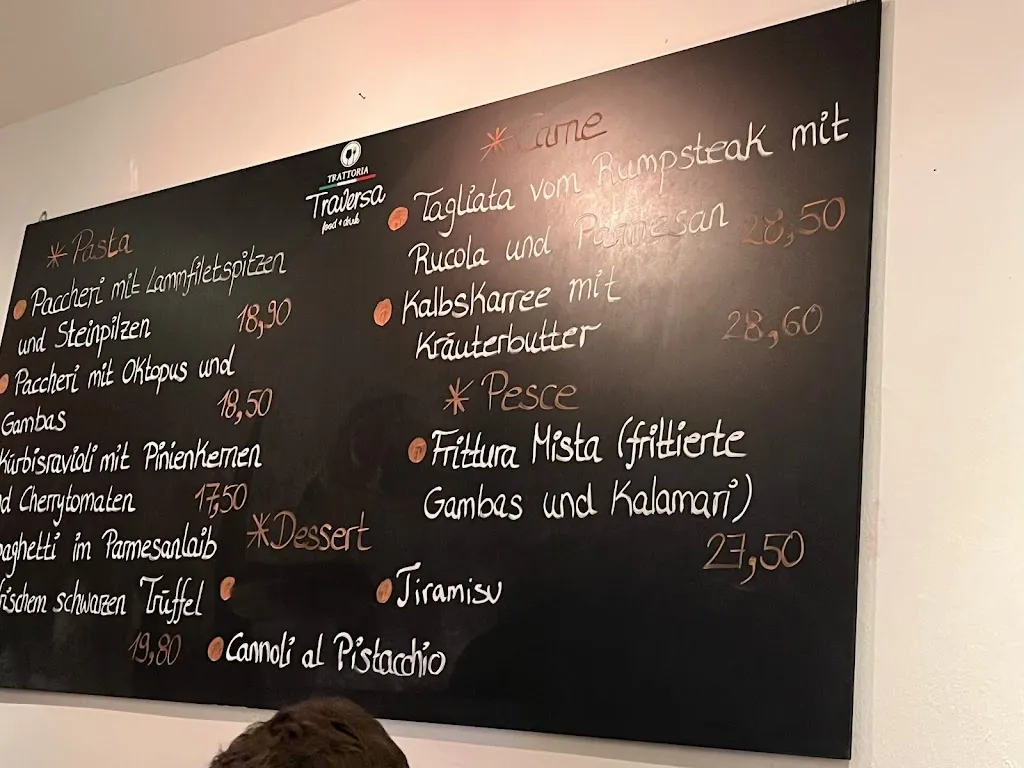 TRATTORIA
Traversa
food & drink
* Pasta
Paccheri mit Lammfiletspitzen
und Steinpilzen 18,90
Paccheri mit Oktopus und
Gambas 18,50
Kürbisravioli mit Pinienkernen
d Cherrytomaten 17,50
paghetti im Parmesanlaib
frischem schwarzen Trüffel
19,80
* Dessert
Tiramisu
Cannoli al Pistacchio
* Carne
Tagliata vom Rumpsteak mit
Rucola und Parmesan 28,50
Kalbskarree mit
Kräuterbutter 28,60
* Pesce
Frittura Mista (frittierte
Gambas und Kalamari)
27,50